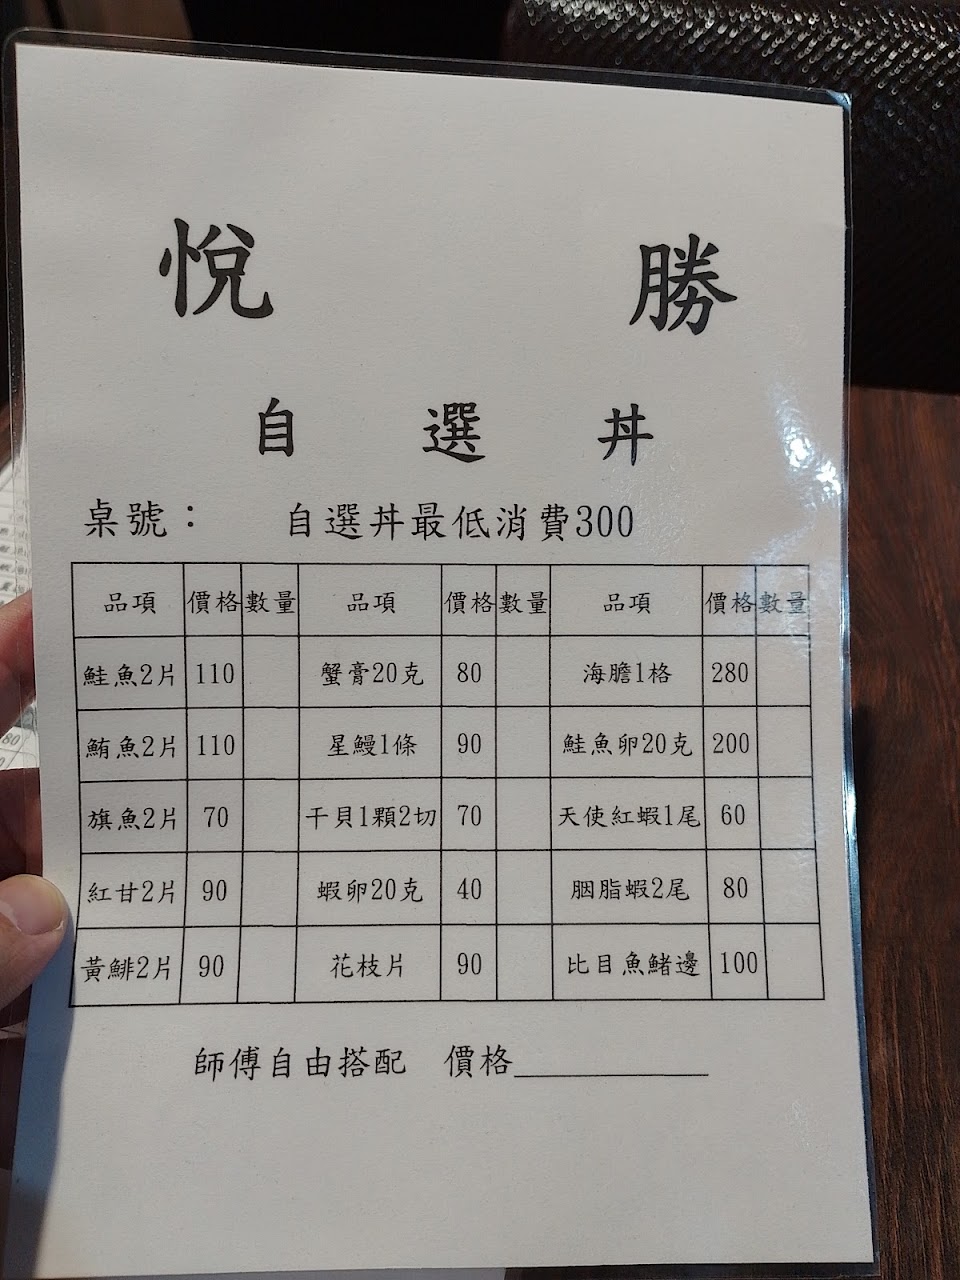 悅 勝
自 選 丼
桌號： 自選丼最低消費300
品項 價格 數量 品項 價格 數量 品項 價格 數量
鮭魚2片 110 蟹膏20克 80 海膽1格 280
鮪魚2片 110 星鰻1條 90 鮭魚卵20克 200
旗魚2片 70 干貝1顆2切 70 天使紅蝦1尾 60
紅甘2片 90 蝦卵20克 40 胭脂蝦2尾 80
黃鯡2片 90 花枝片 90 比目魚鰭邊 100
師傅自由搭配 價格